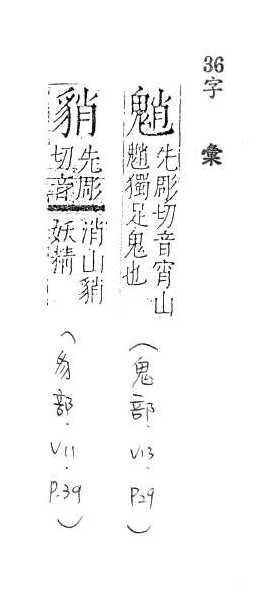 36字彙
魈 先彫切音宵山
魈獨足鬼也
(鬼部.V13.P.29)
䝤 先彫
切音
消山䝤
妖精
(豸部.V11.P.39)